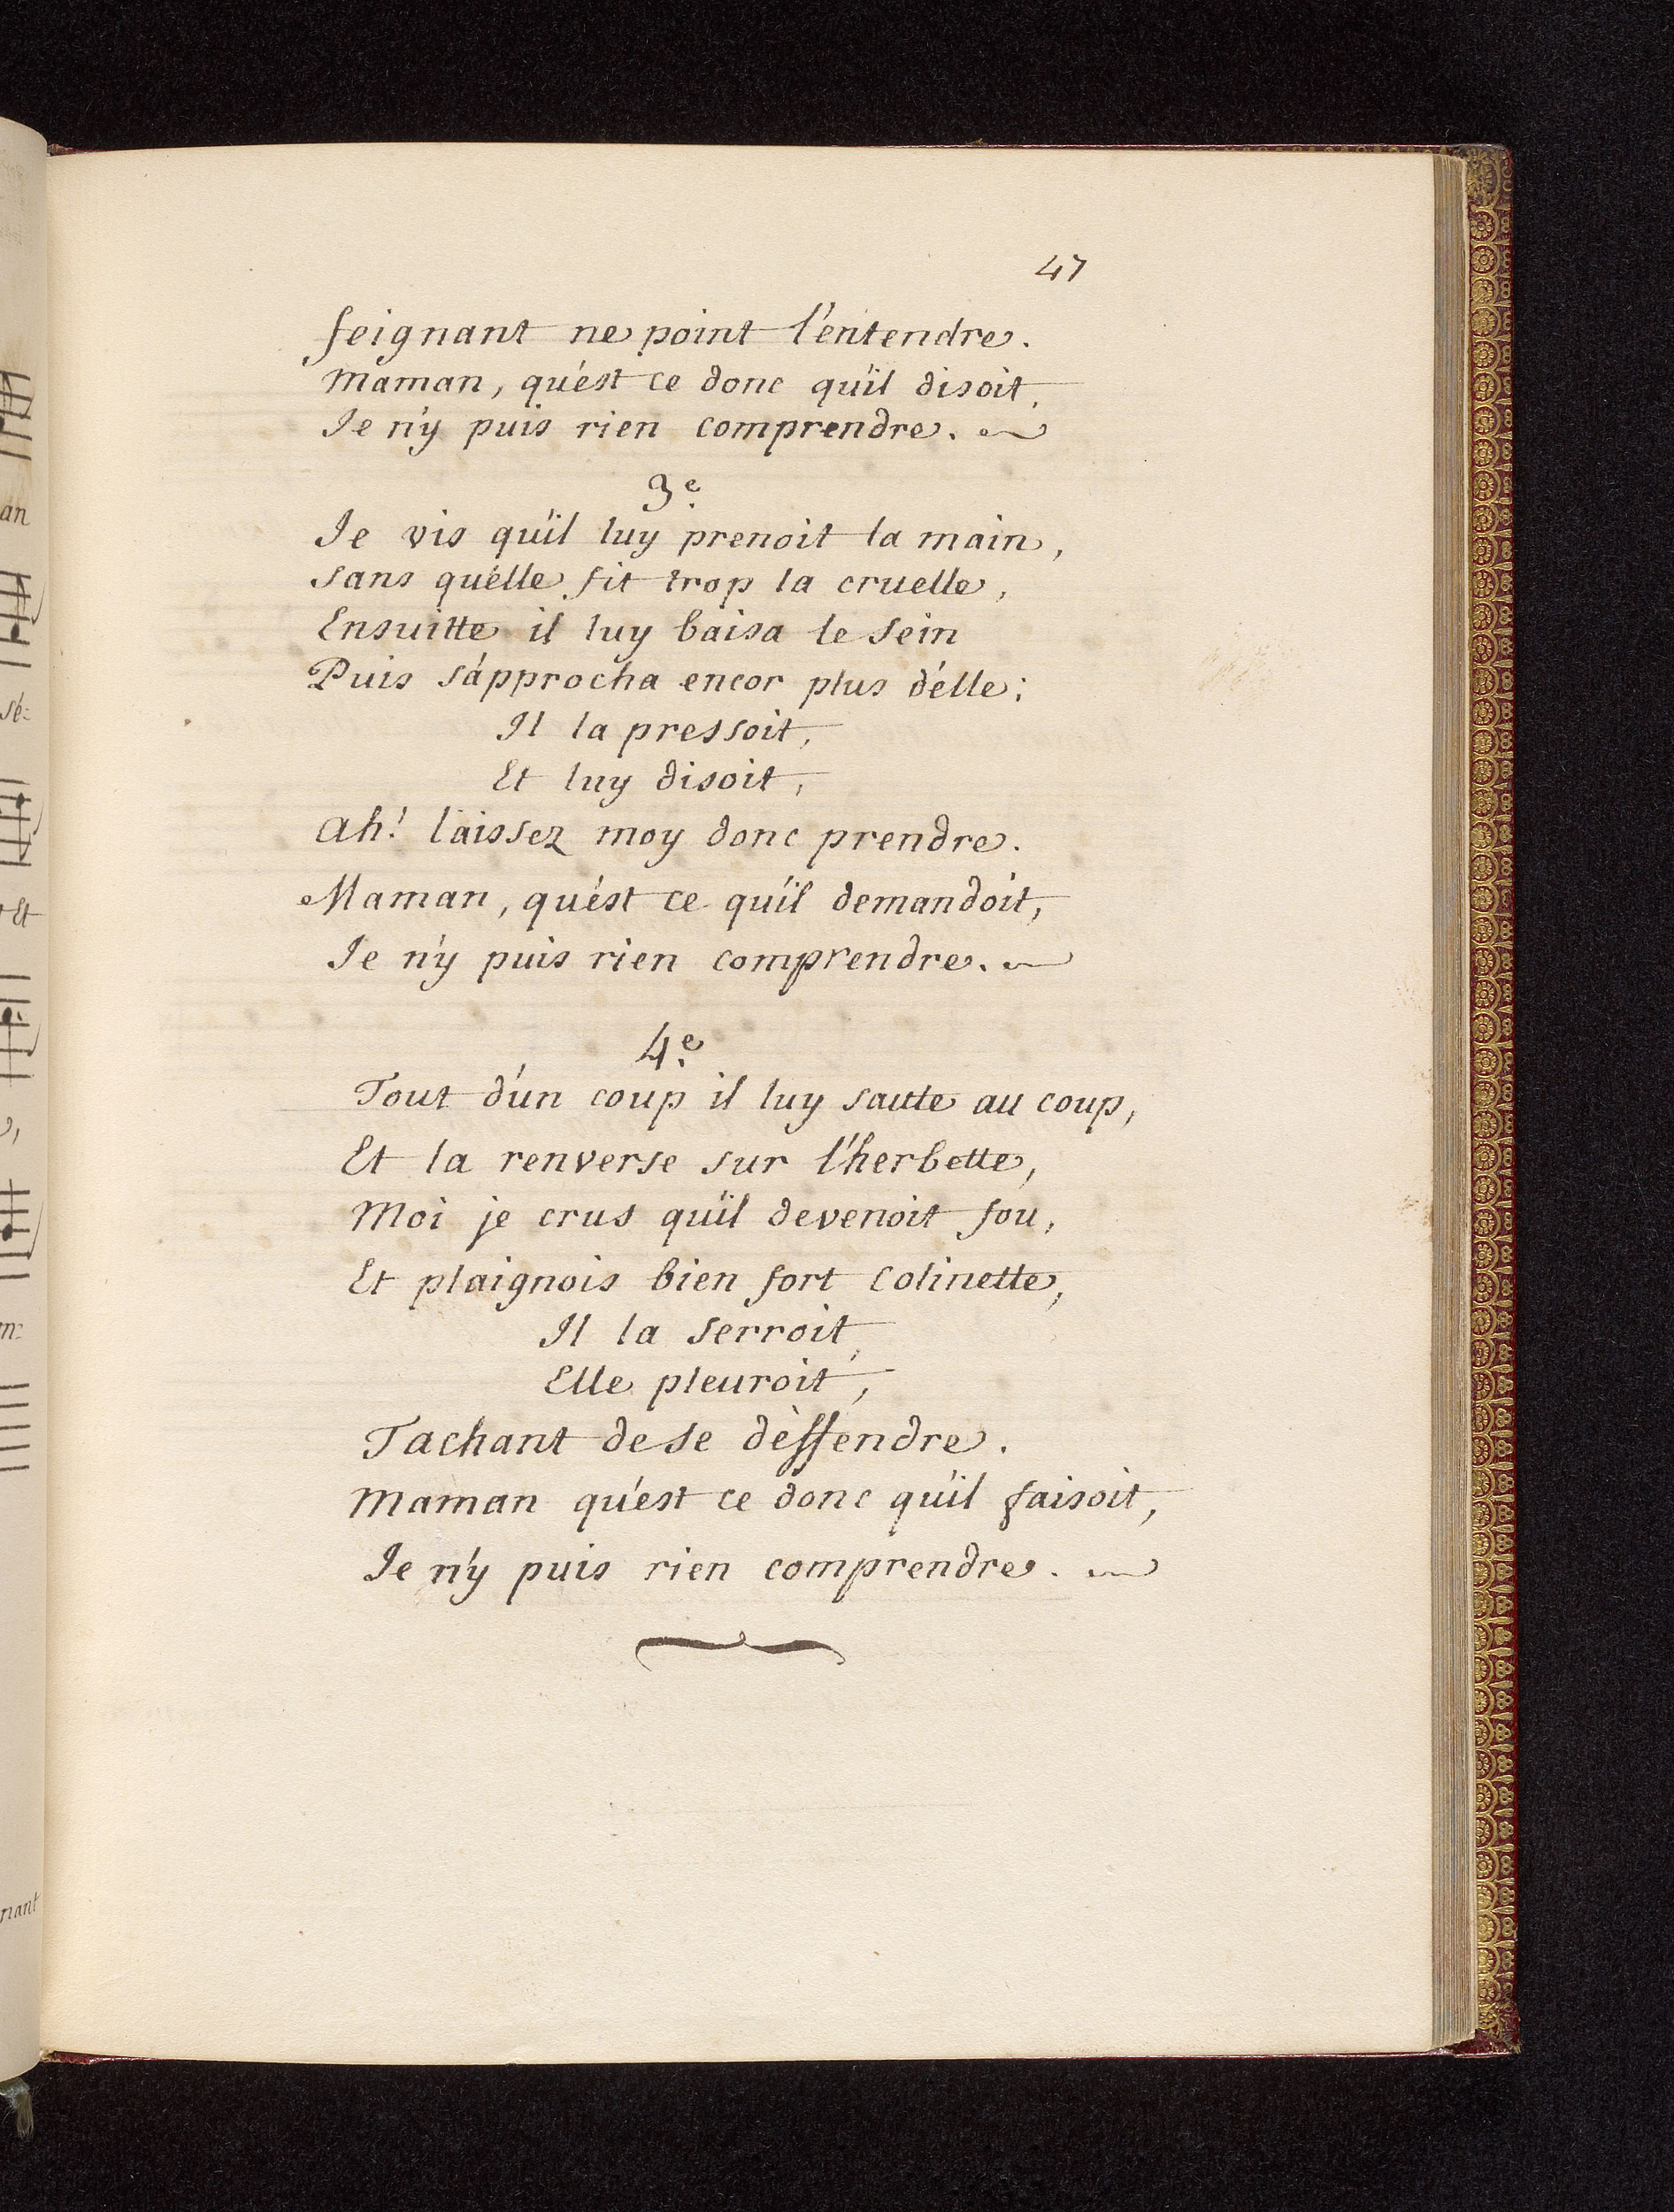 47
feignant ne point l'entendre.
Maman, qu'est ce donc qu'il disoit,
Je n'y puis rien comprendre.
3.e
Je vis qu'il luy prenoit la main,
Sans qu'elle fit trop la cruelle,
Ensuitte il luy baisa le Sein
Puis s'approcha encor plus d'elle;
Il la pressoit,
Et luy disoit,
ah! laissez moy donc prendre.
Maman, qu'est ce qu'il demandoit,
Je n'y puis rien comprendre.
4.e
Tout d'un coup il luy saute au coup,
Et la renverse sur l'herbette,
Moi je crus qu'il devenoit fou,
Et plaignois bien fort Colinette,
Il la Serroit,
Elle pleuroit,
Tachant de se dèffendre.
Maman qu'est ce donc qu'il faisoit,
Je n'y puis rien comprendre.
an
sé=
Et
nant